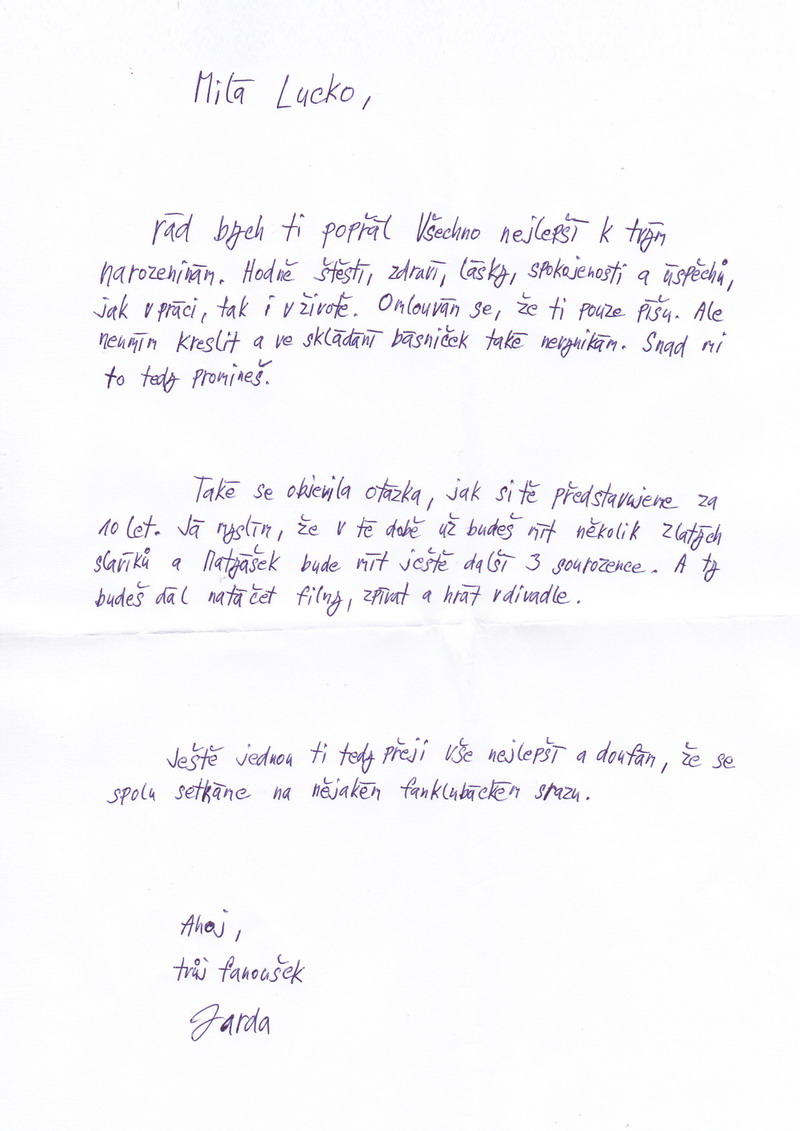 Milá Lucko,
rád bych ti popřál Všechno nejlepší k tvým
narozeninám. Hodně štěstí, zdraví, lásky, spokojenosti a úspěchů,
jak v práci, tak i v životě. Omlouvám se, že ti pouze píšu. Ale
neumím kreslit a ve skládání básniček také nevynikám. Snad mi
to tedy promineš.
Také se objevila otázka, jak si tě představujeme za
10 let. Já myslím, že v té době už budeš mít několik Zlatých
slavíků a Matyášek bude mít ještě další 3 sourozence. A ty
budeš dál natáčet filmy, zpívat a hrát v divadle.
Ještě jednou ti tedy přeji vše nejlepší a doufám, že se
spolu setkáme na nějakém fanklubáckém srazu.
Ahoj,
tvůj fanoušek
Jarda